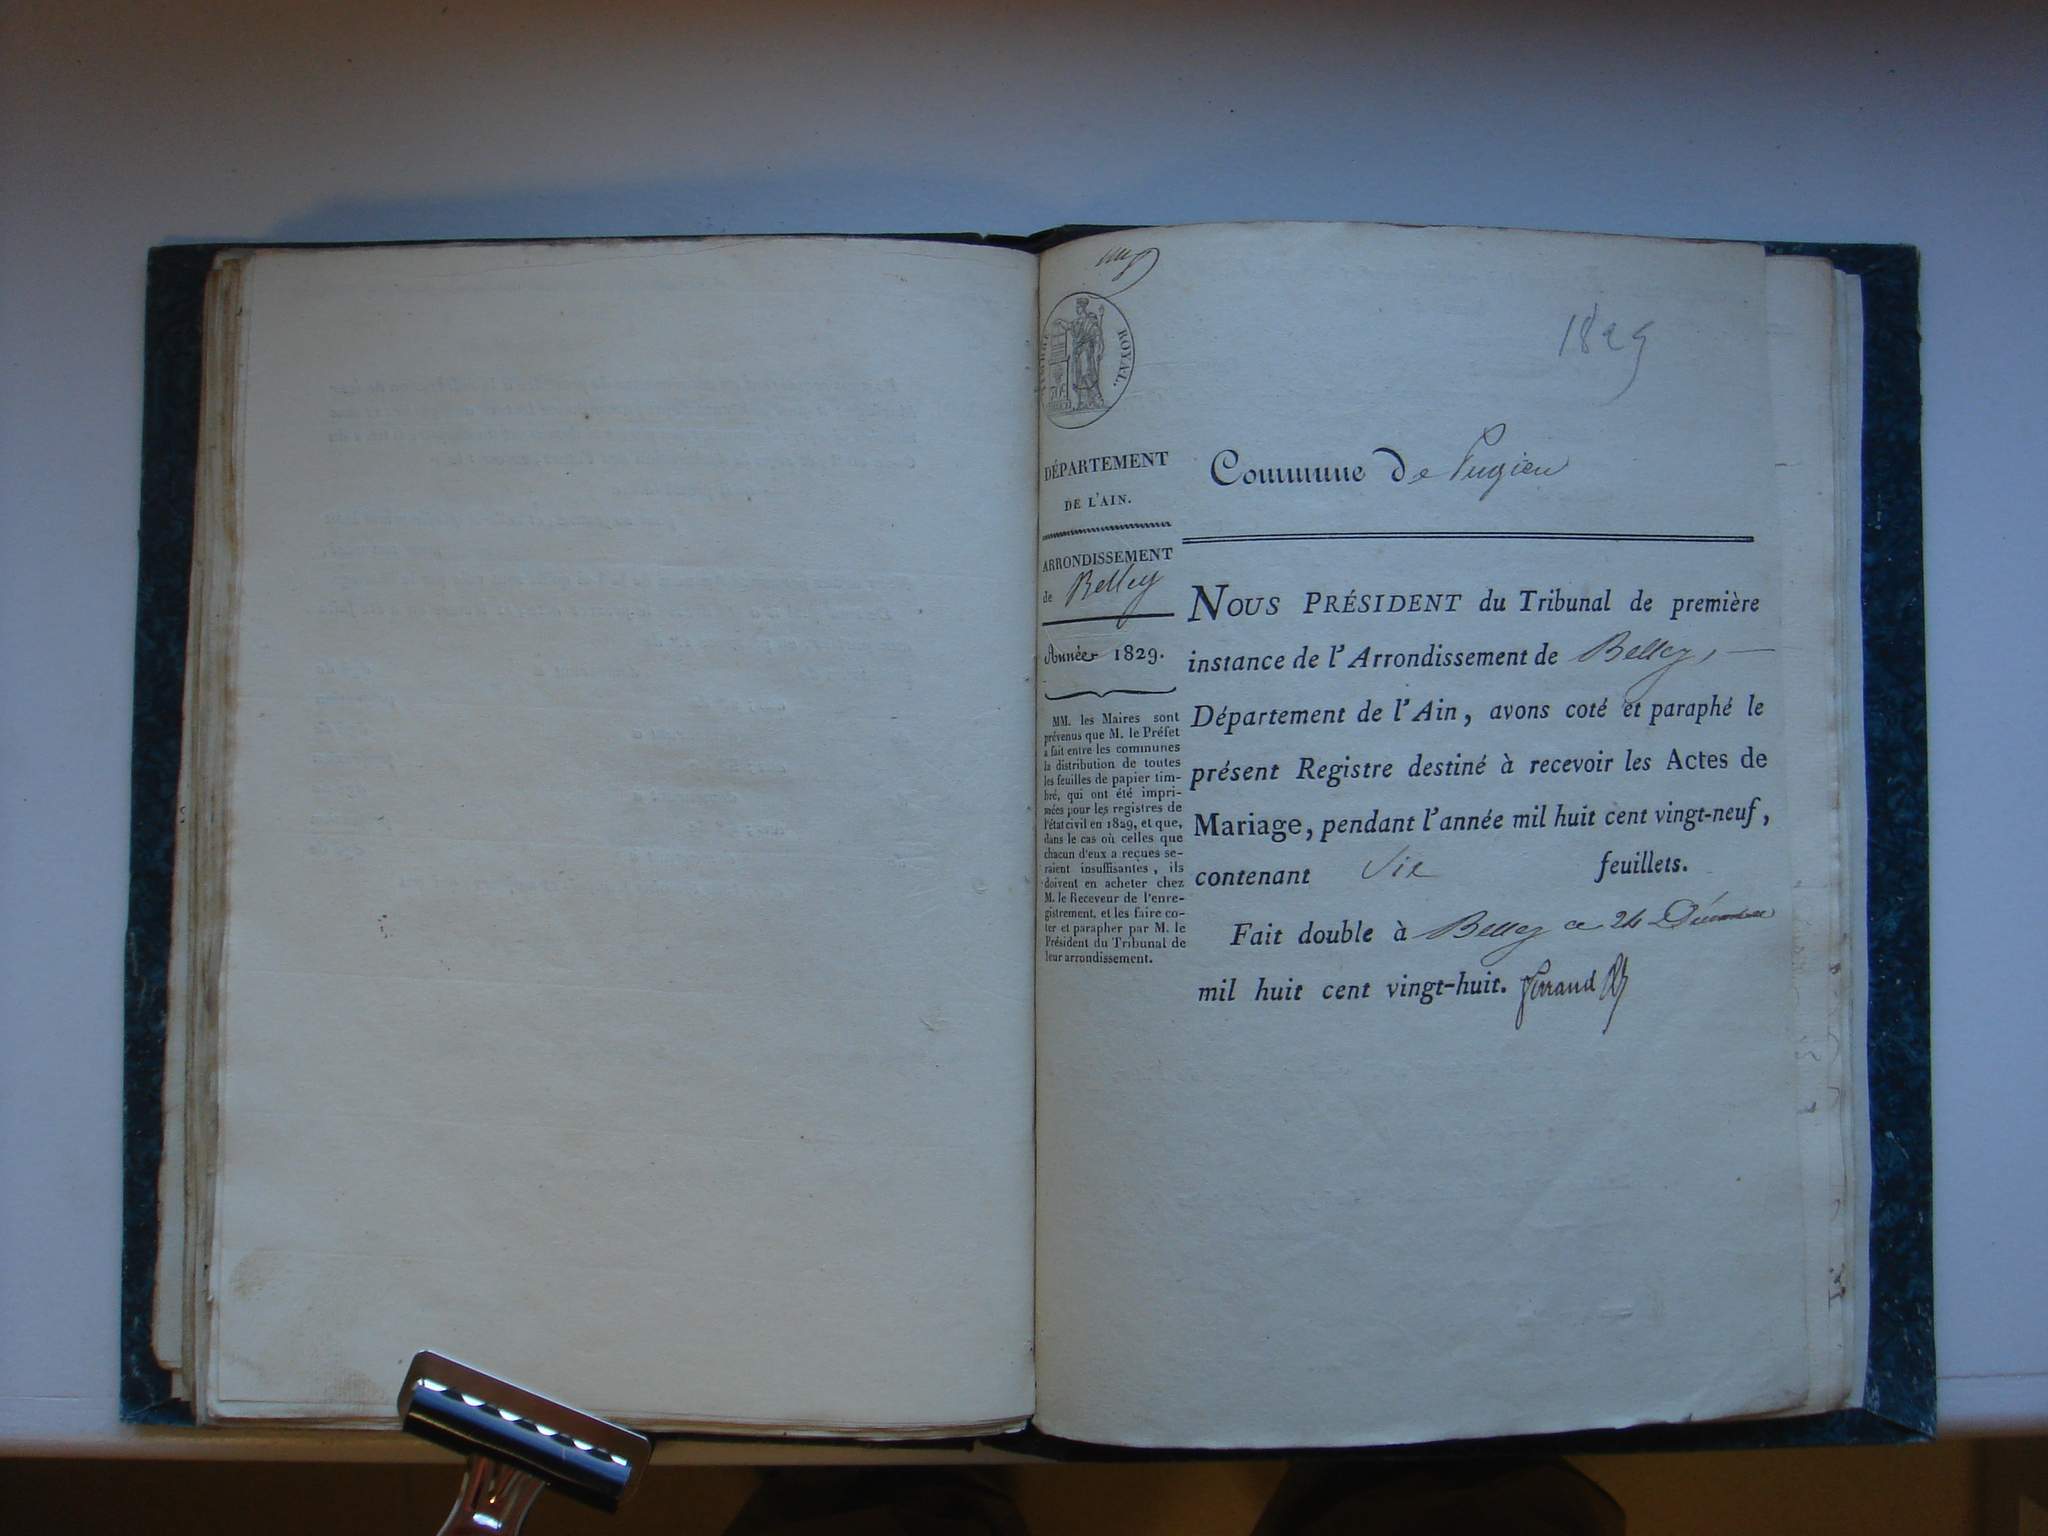 1829
TIMBRE ROYAL.
DÉPARTEMENT
DE L'AIN.
ARRONDISSEMENT
de Belley
Année 1829.
MM. les Maires sont
prévenus que M. le Préfet
a fait entre les communes
la distribution de toutes
les feuilles de papier tim-
bré, qui ont été impri-
mées pour les registres de
l'état civil en 1829, et que,
dans le cas où celles que
chacun d'eux a reçues se-
raient insuffisantes, ils
doivent en acheter chez
M. le Receveur de l'enre-
gistrement, et les faire co-
ter et parapher par M. le
Président du Tribunal de
leur arrondissement.
Commune de Pugieu
NOUS PRÉSIDENT du Tribunal de première
instance de l'Arrondissement de Belley,
Département de l'Ain, avons coté et paraphé le
présent Registre destiné à recevoir les Actes de
Mariage, pendant l'année mil huit cent vingt-neuf,
contenant Six feuillets.
Fait double à Belley ce 24 Décembre
mil huit cent vingt-huit.